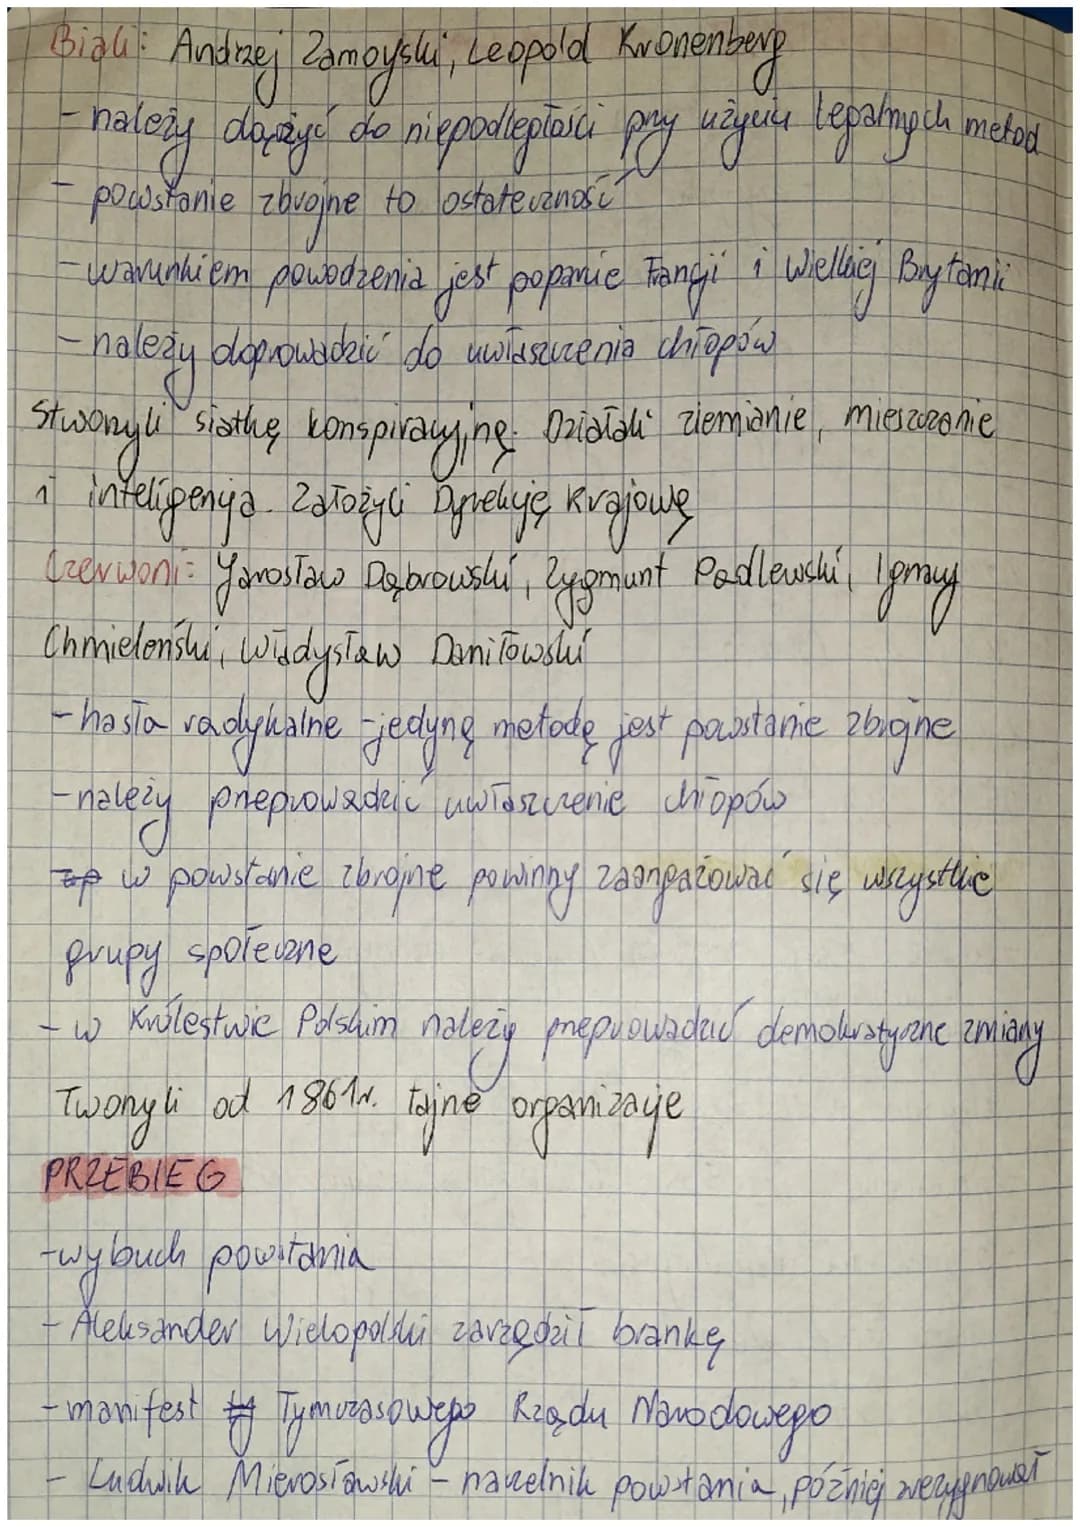 Biali: Andrzej Zamoyski, Leopold Kronenberg
- należy dążyć do niepodległości przy użyciu legalnych metod
- powstanie zbrojne to ostateczność
- warunkiem powodzenia jest poparcie Francji i Wielkiej Brytanii
- należy doprowadzić do uwłaszczenia chłopów
Stworzyli siatkę konspiracyjną. Działali ziemianie, mieszczanie
i inteligencja. Założyli Dyrekcję Krajową
Czerwoni: Jarosław Dąbrowski, Zygmunt Padlewski, Ignacy
Chmieleński, Władysław Daniłowski
- hasła radykalne - jedyną metodą jest powstanie zbrojne
- należy przeprowadzić uwłaszczenie chłopów
w powstanie zbrojne powinny zaangażować się wszystkie
grupy społeczne
- w Królestwie Polskim należy przeprowadzić demokratyczne zmiany
Tworzyli od 1861r. tajne organizacje
PRZEBIEG
- wybuch powstania
- Aleksander Wielopolski zarządził brankę
- manifest Tymczasowego Rządu Narodowego
- Ludwik Mierosławski - naczelnik powstania, później zrezygnował